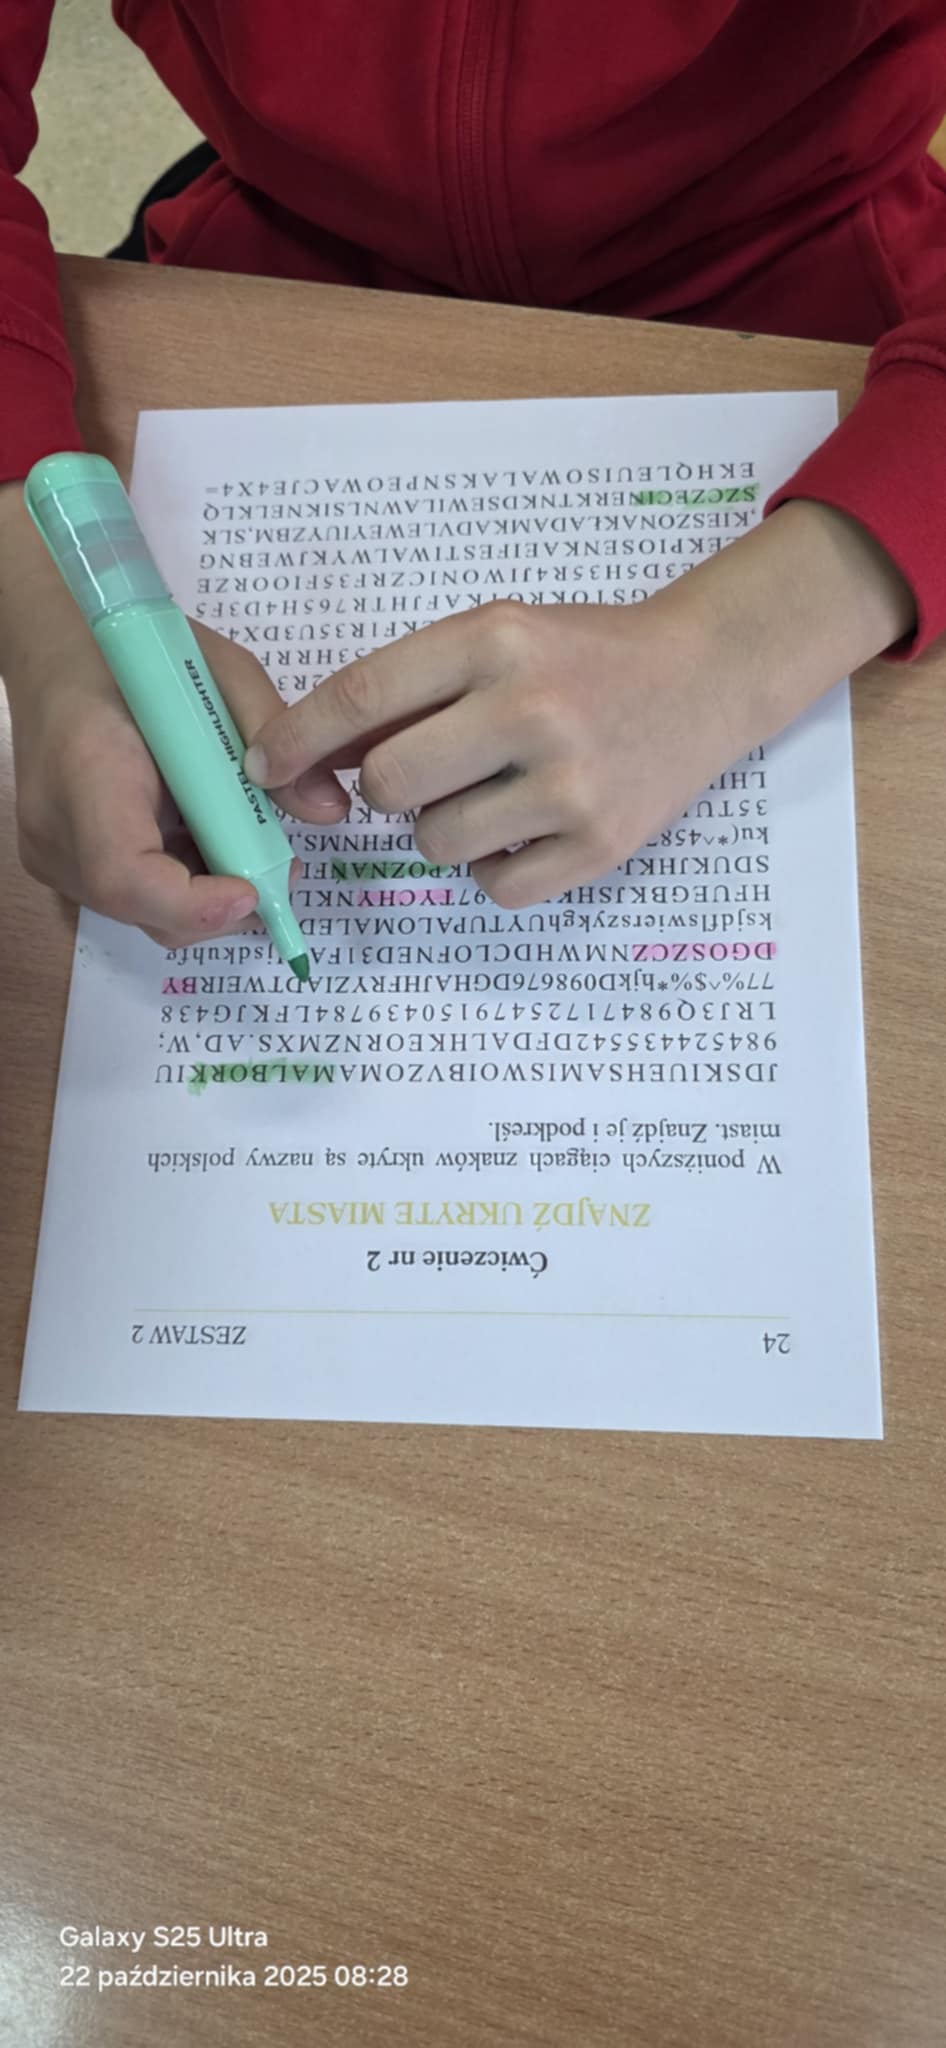 24 ZESTAW 2
Ćwiczenie nr 2
ZNAJDŹ UKRYTE MIASTA
W poniższych ciągach znaków ukryte są nazwy polskich
miast. Znajdź je i podkreśl.
JDSKIUEHSAMISWOIBVZOMAMALBORKKIU
98452443554 2DFDALHKEORNZMXS.AD,W;
LRJ3Q984717254791504397 84LFKJG438
77%^$%*hjkD098676DGHAJHFRYZIADTWEIRBY
DGOSZCZNMWHDCLOFNED31FA jsdkuhfg
ksjdflswierszykghUYTUPALOMALED
HFUEGBKJSHK 97TYCHYNKL
SDUKJHKJ IKPOZNAŃFI
ku(*^458 DFHNMS,
35TU
LHI
2R3
53HRRF
EKF1R35U3DX4
GSTOKRO KAFJHTR765H4D3F5
E3D5H35R4JIWONICZRF35FIOORZE
EKPIOSENKAEIFESTIWALWYKJWEBNG
,KIESZONAKŁADAMKADVLEWEYIUYZBM,SLK
SZCZECINERKTNKDSEWILAWNLSIKNELKLQ
EKHQLEUISOWALAKSNPEOWACJE4X4=
PASTEL HIGHLIGHTER
Galaxy S25 Ultra
22 października 2025 08:28